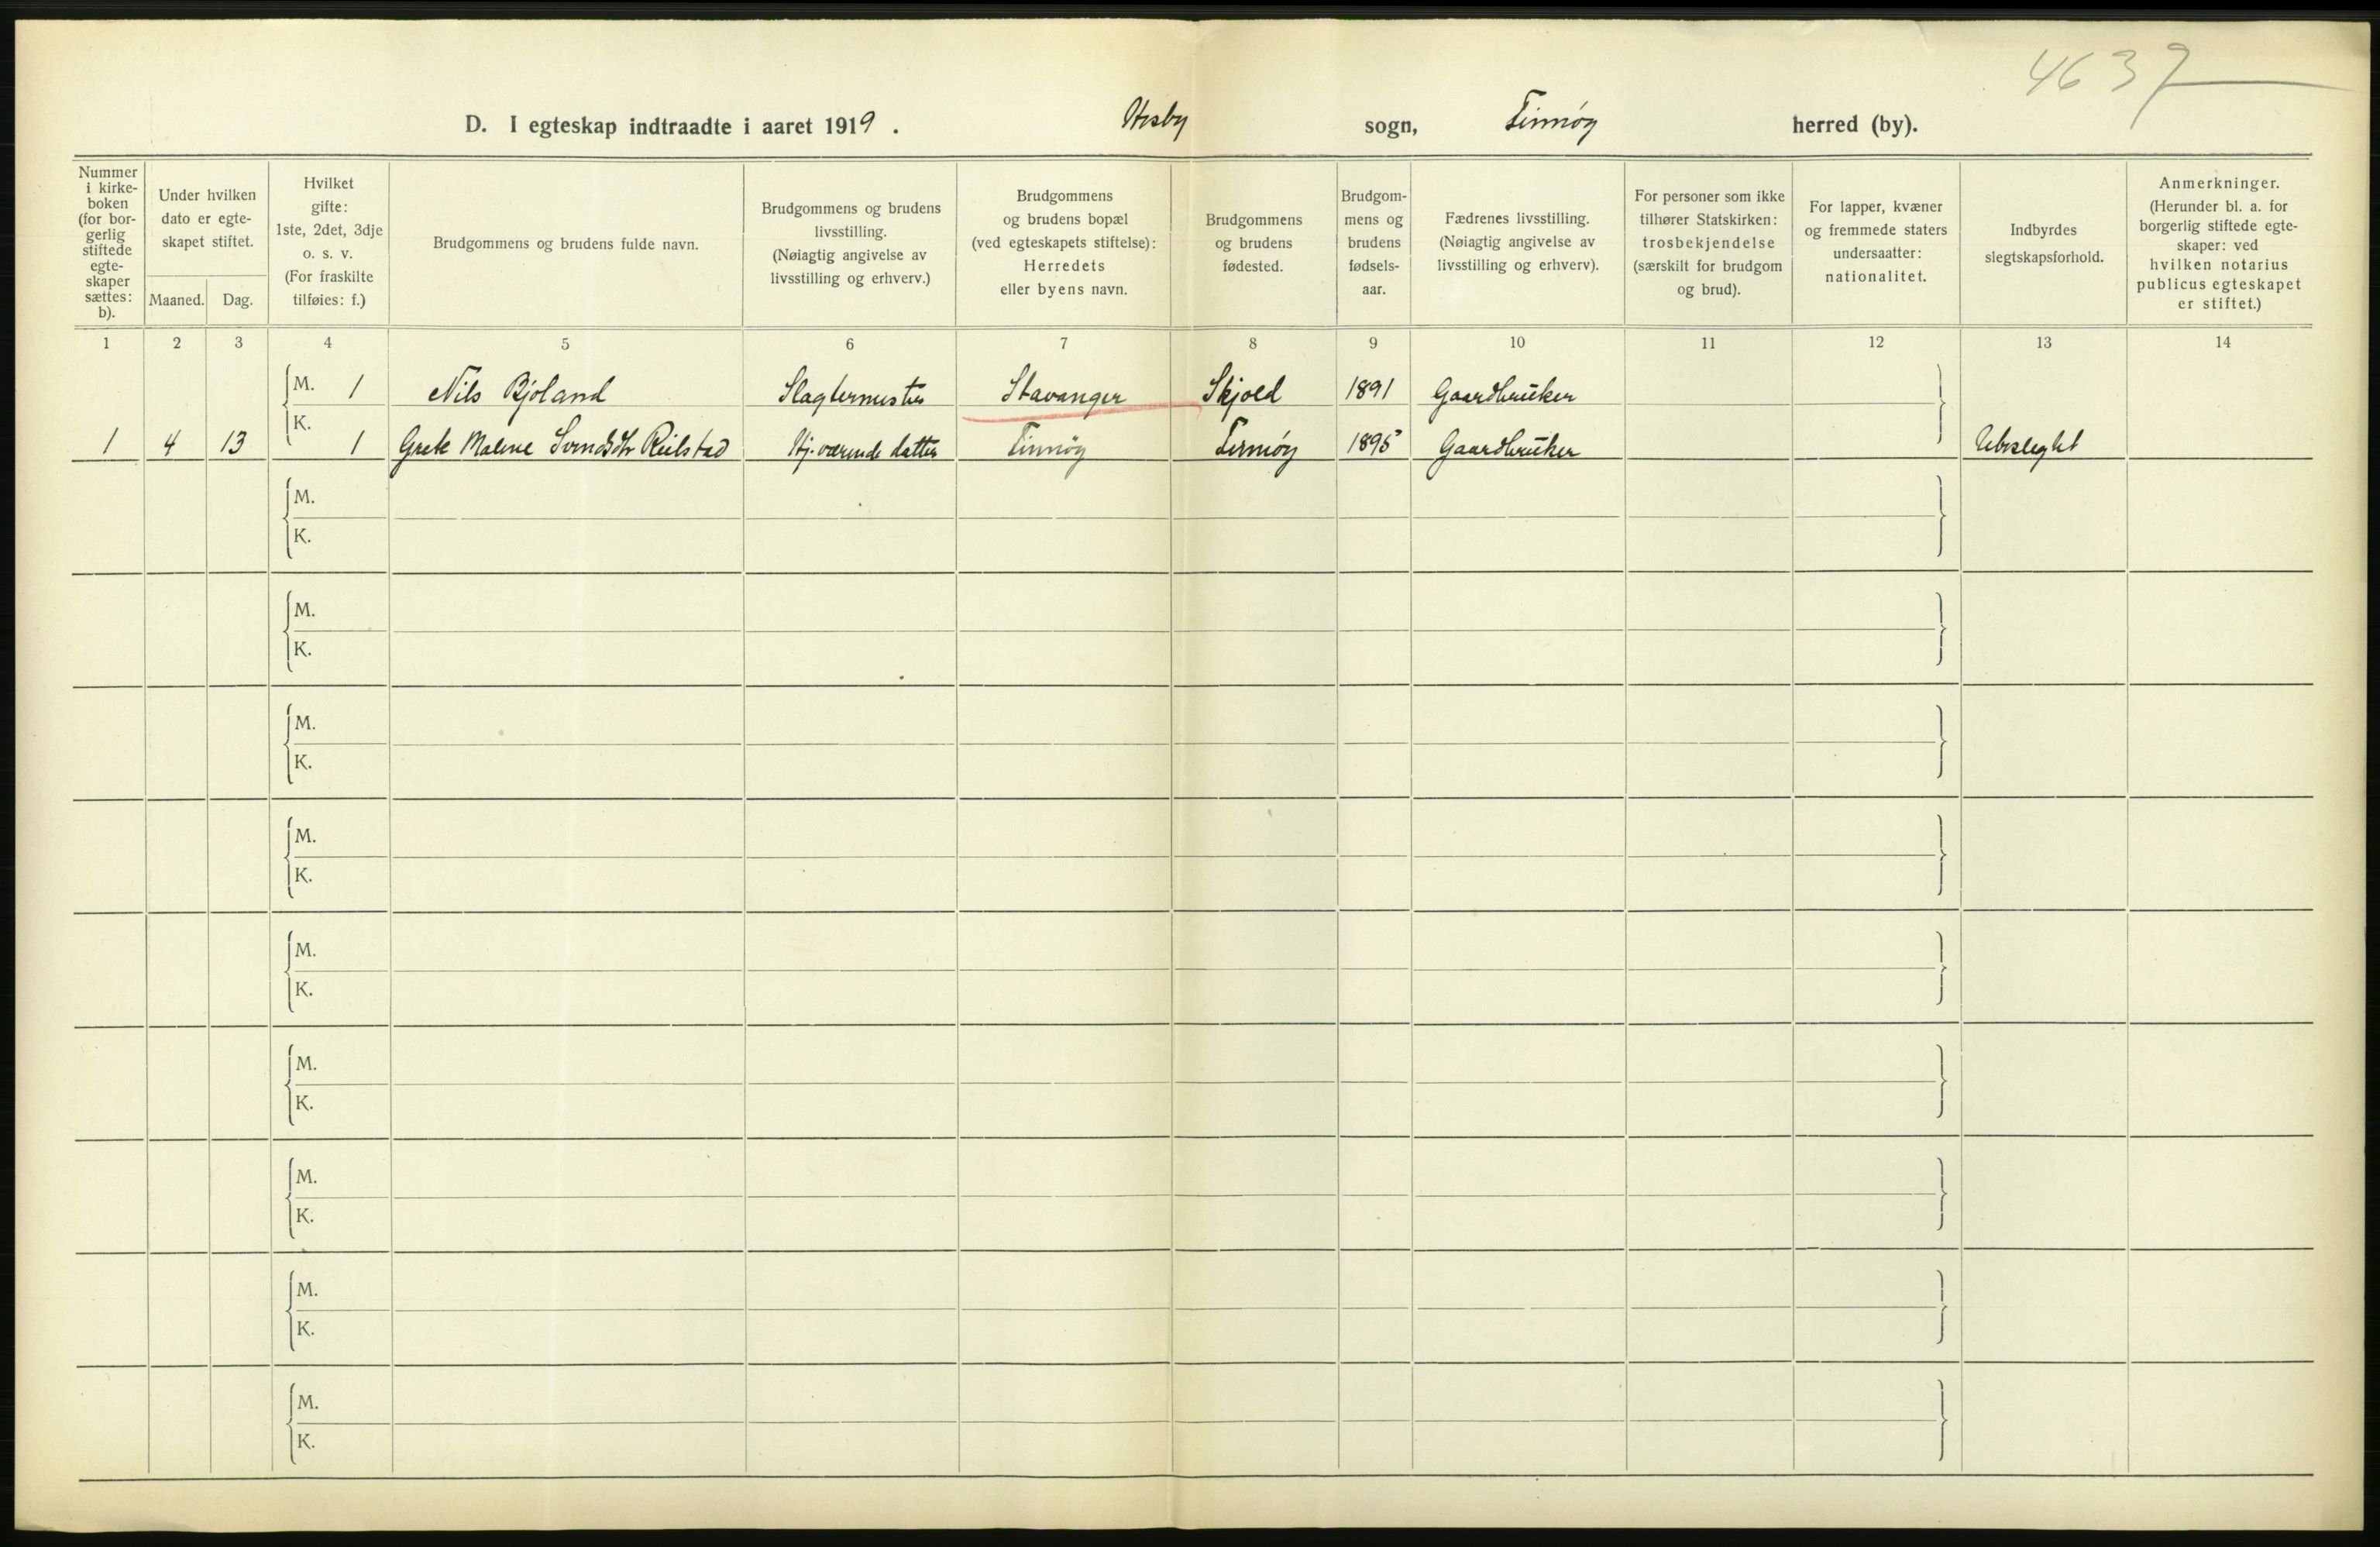 4637
D. I egteskap indtraadte i aaret 1919. Hesby sogn, Finnøy herred (by).
Nummer i kirke-boken (for bor-gerlig stiftede egte-skaper sættes: b).
Under hvilken dato er egte-skapet stiftet.
Maaned. Dag.
Hvilket gifte: 1ste, 2det, 3dje o. s. v. (For fraskilte tilføies: f.)
Brudgommens og brudens fulde navn.
Brudgommens og brudens livsstilling. (Nøiagtig angivelse av livsstilling og erhverv.)
Brudgommens og brudens bopæl (ved egteskapets stiftelse): Herredets eller byens navn.
Brudgommens og brudens fødested.
Brudgom-mens og brudens fødsels-aar.
Fædrenes livsstilling. (Nøiagtig angivelse av livsstilling og erhverv).
For personer som ikke tilhører Statskirken: trosbekjendelse (særskilt for brudgom og brud).
For lapper, kvæner og fremmede staters undersaatter: nationalitet.
Indbyrdes slegtskapsforhold.
Anmerkninger. (Herunder bl. a. for borgerlig stiftede egte-skaper: ved hvilken notarius publicus egteskapet er stiftet.)
1 2 3 4 5 6 7 8 9 10 11 12 13 14
M. 1 Nils Bjoland Slagtermester Stavanger Skjold 1891 Gaardbruker
K.
1 4 13 1 Grete Malene Svendsdtr Reilstad Hj.værende datter Finnøy Finnøy 1895 Gaardbruker Ubeslegtet
M.
K.
M.
K.
M.
K.
M.
K.
M.
K.
M.
K.
M.
K.
M.
K.
M.
K.